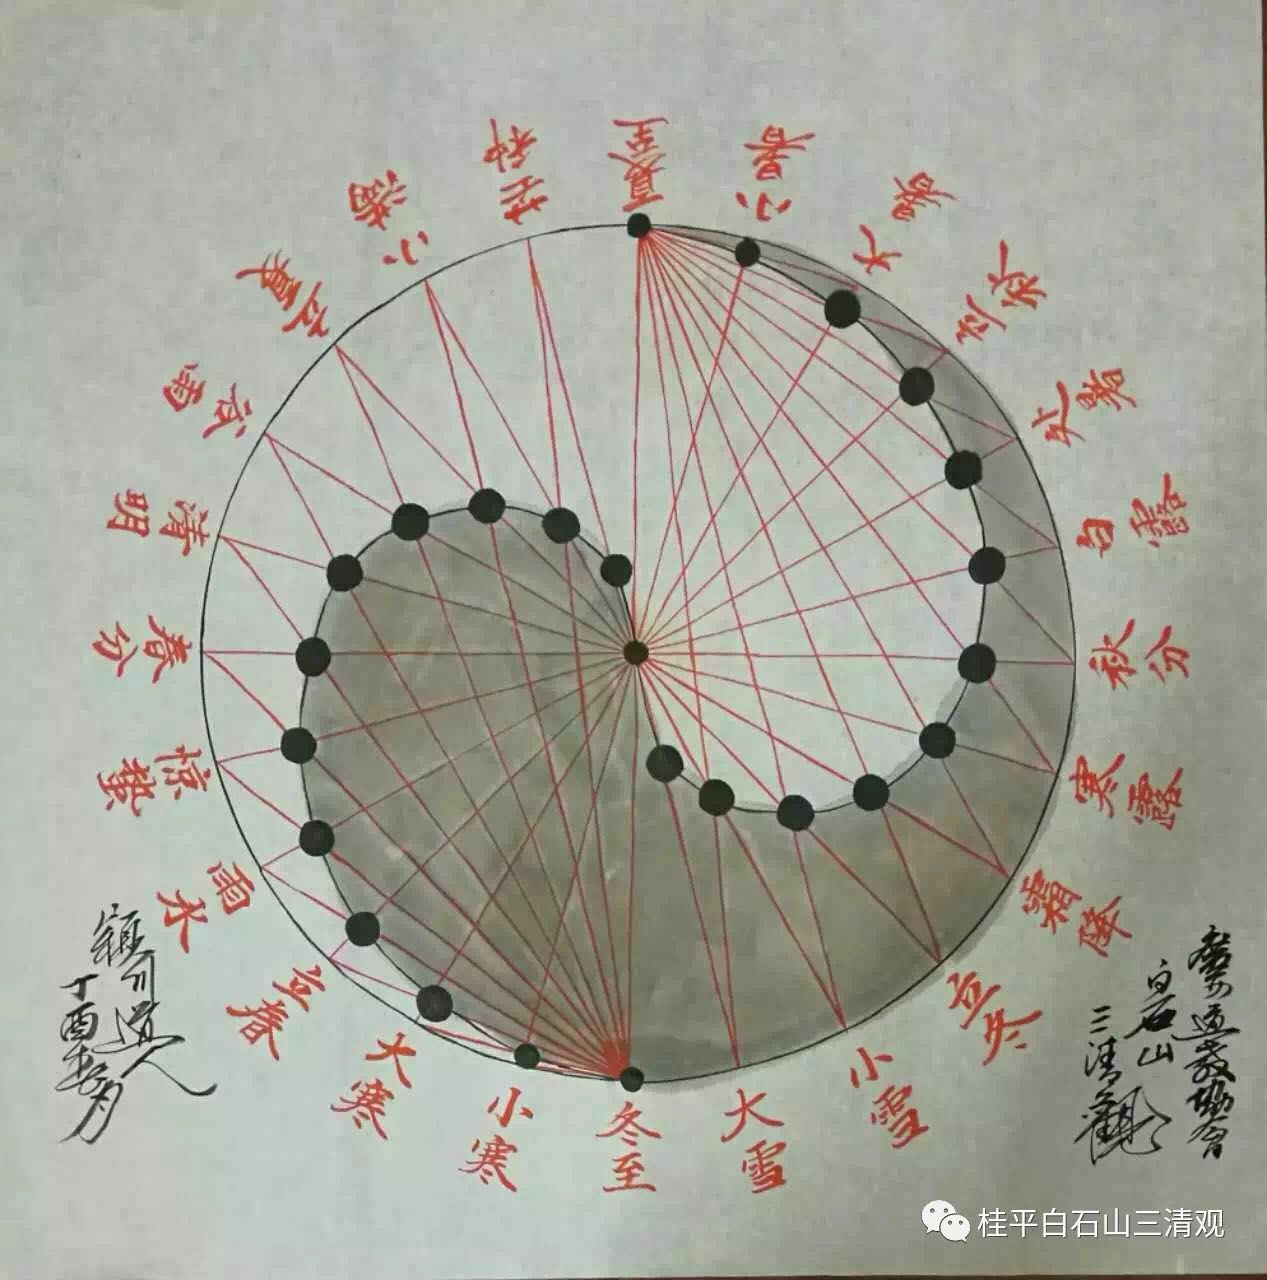 夏至
小暑
大暑
立秋
处暑
白露
秋分
寒露
霜降
立冬
小雪
大雪
冬至
小寒
大寒
立春
雨水
惊蛰
春分
清明
谷雨
立夏
小满
芒种
道教協会
白石山
三清觀
川道人
丁酉春月
桂平白石山三清观